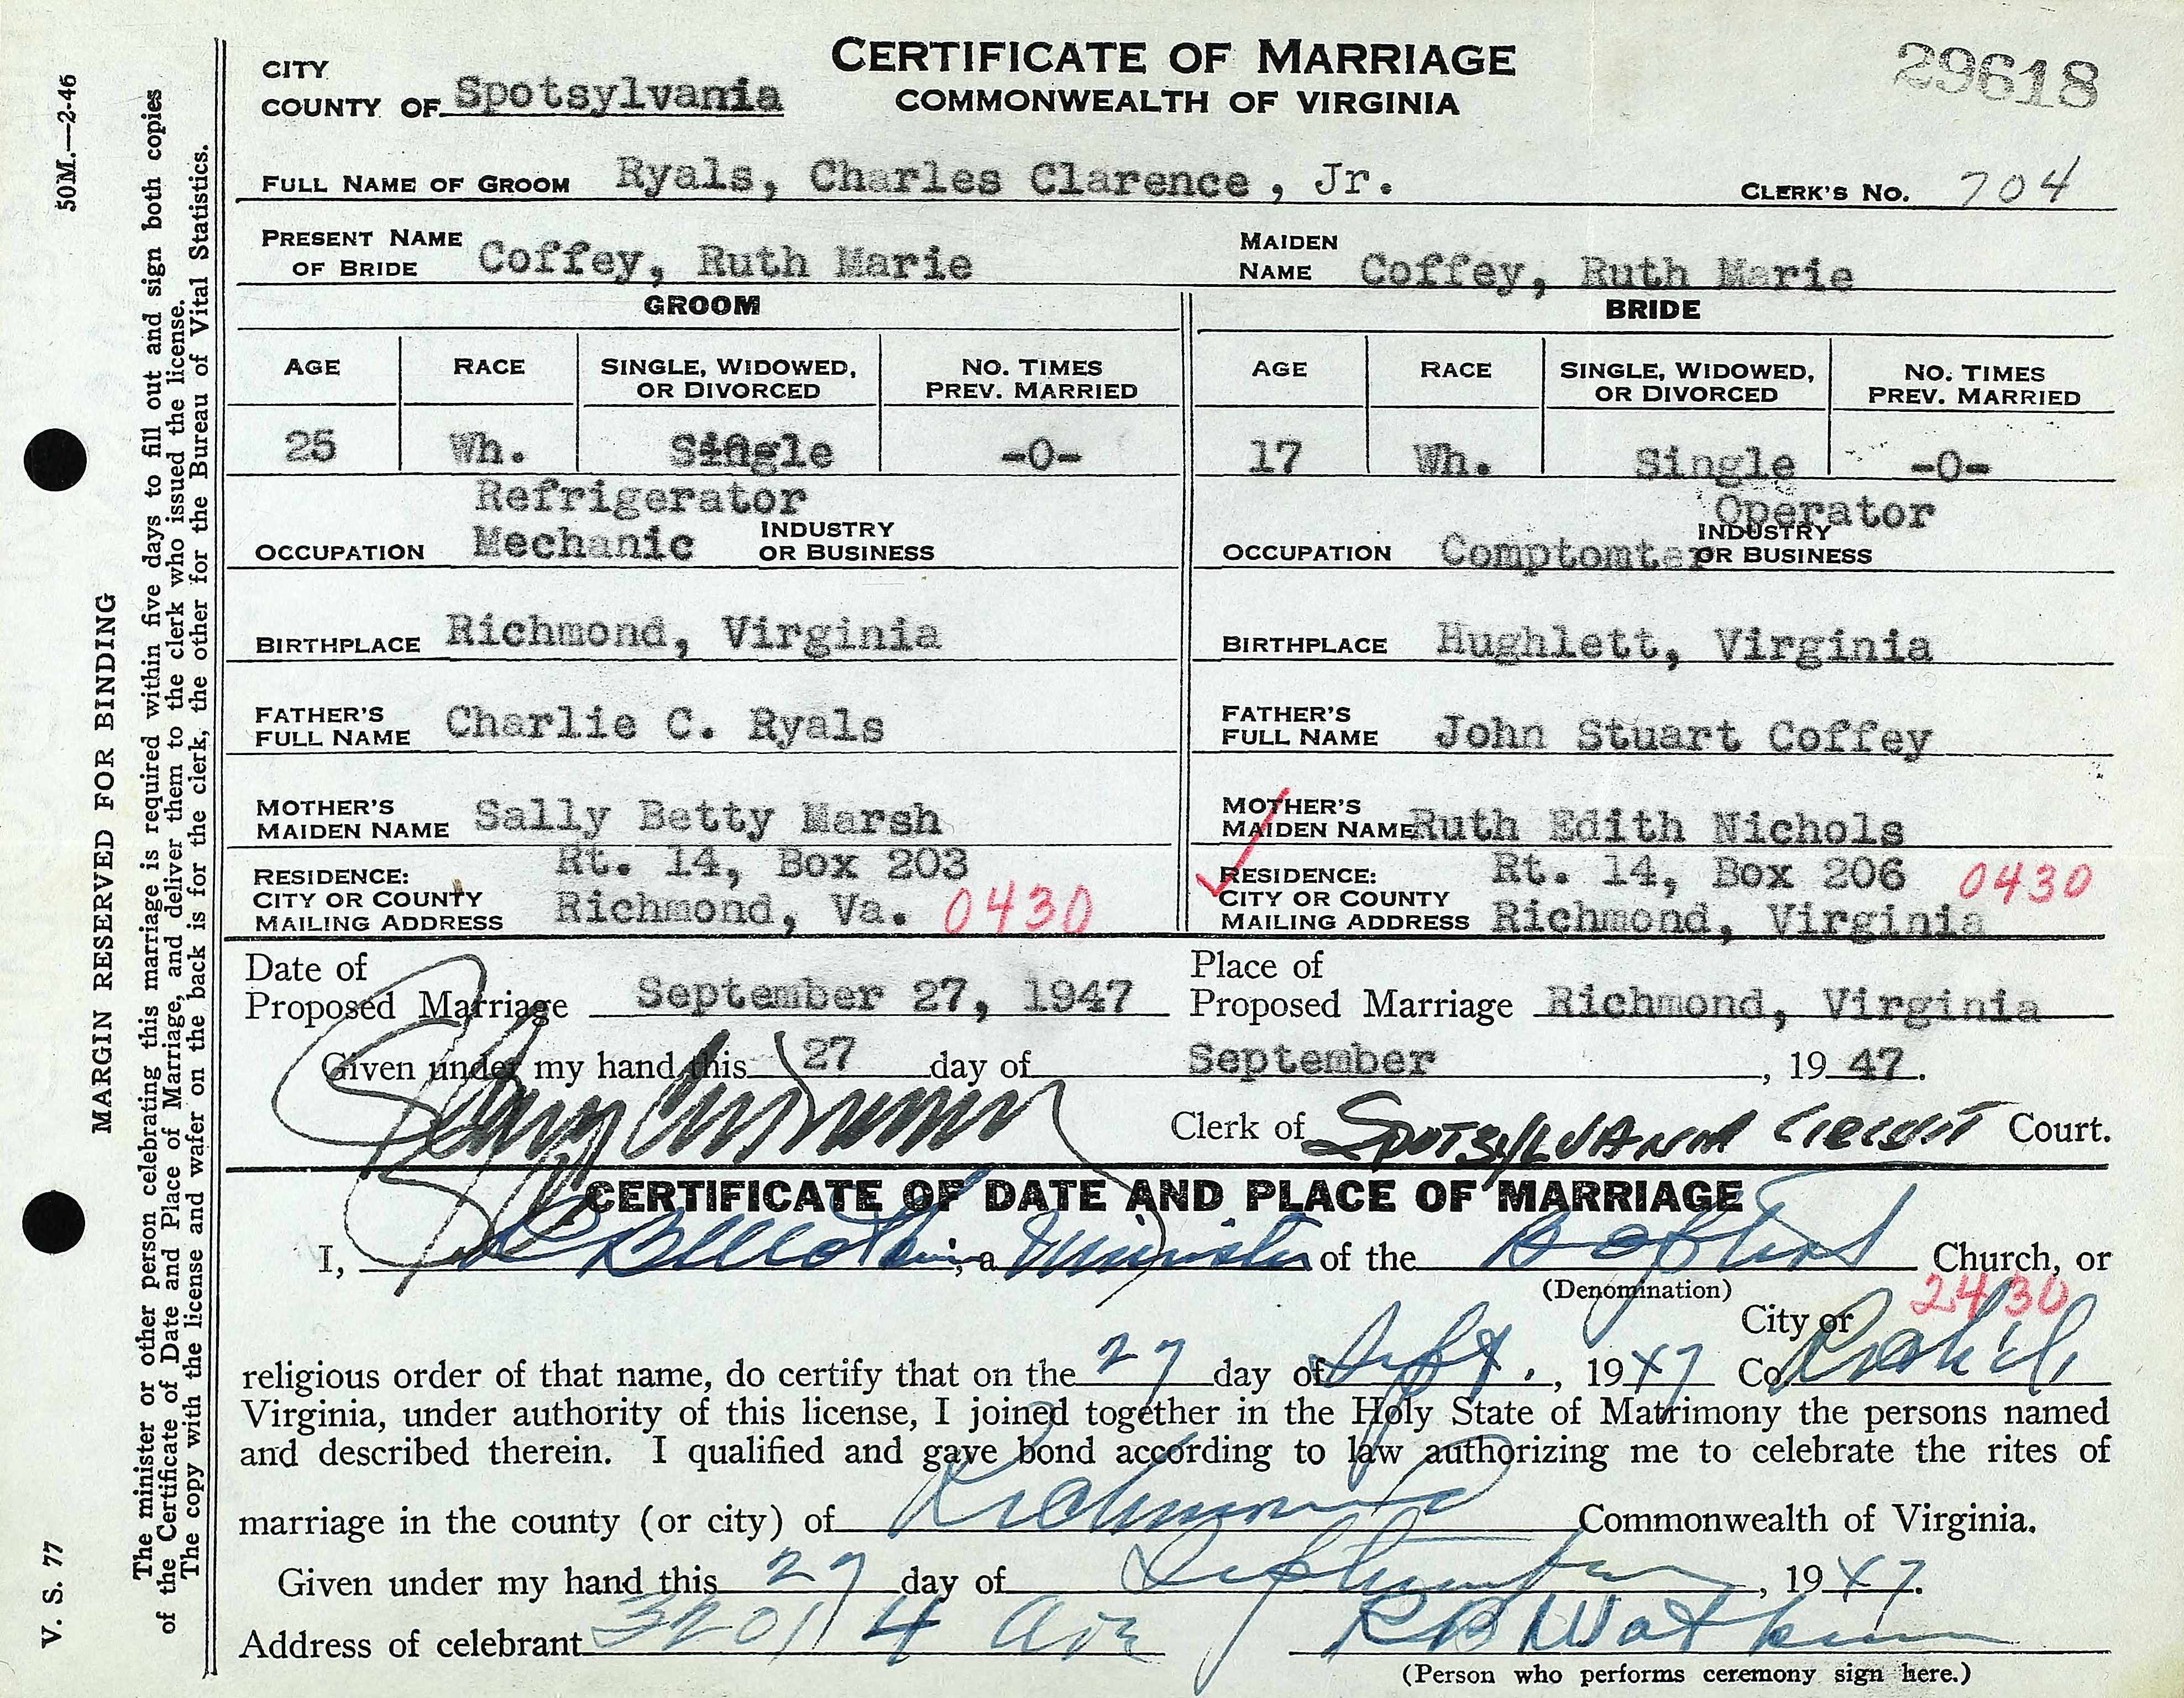 CERTIFICATE OF MARRIAGE
COMMONWEALTH OF VIRGINIA
29618
CITY
COUNTY OF Spotsylvania
FULL NAME OF GROOM Ryals, Charles Clarence, Jr. CLERK'S No. 704
PRESENT NAME OF BRIDE Coffey, Ruth Marie MAIDEN NAME Coffey, Ruth Marie
GROOM BRIDE
AGE RACE SINGLE, WIDOWED, OR DIVORCED NO. TIMES PREV. MARRIED AGE RACE SINGLE, WIDOWED, OR DIVORCED NO. TIMES PREV. MARRIED
25 Wh. Single -0- 17 Wh. Single -0-
OCCUPATION Refrigerator Mechanic INDUSTRY OR BUSINESS OCCUPATION Comptomter Operator INDUSTRY OR BUSINESS
BIRTHPLACE Richmond, Virginia BIRTHPLACE Hughlett, Virginia
FATHER'S FULL NAME Charlie C. Ryals FATHER'S FULL NAME John Stuart Coffey
MOTHER'S MAIDEN NAME Sally Betty Marsh MOTHER'S MAIDEN NAME Ruth Edith Nichols
RESIDENCE: CITY OR COUNTY MAILING ADDRESS Rt. 14, Box 203 Richmond, Va. 0430 RESIDENCE: CITY OR COUNTY MAILING ADDRESS Rt. 14, Box 206 Richmond, Virginia 0430
Date of Proposed Marriage September 27, 1947 Place of Proposed Marriage Richmond, Virginia
Given under my hand this 27 day of September, 1947.
Clerk of SPOTSYLVANIA CIRCUIT Court.
CERTIFICATE OF DATE AND PLACE OF MARRIAGE
I, , a Minister of the Baptist Church, or
(Denomination)
2430
City or
religious order of that name, do certify that on the 27 day of Sept., 1947 Co.
Virginia, under authority of this license, I joined together in the Holy State of Matrimony the persons named
and described therein. I qualified and gave bond according to law authorizing me to celebrate the rites of
marriage in the county (or city) of Richmond Commonwealth of Virginia.
Given under my hand this 27 day of September, 1947.
Address of celebrant 3201 4 Ave R B Watkins
(Person who performs ceremony sign here.)
50M.—2-46
MARGIN RESERVED FOR BINDING
V. S. 77
The minister or other person celebrating this marriage is required within five days to fill out and sign both copies
of the Certificate of Date and Place of Marriage, and deliver them to the clerk who issued the license.
The copy with the license and wafer on the back is for the clerk, the other for the Bureau of Vital Statistics.